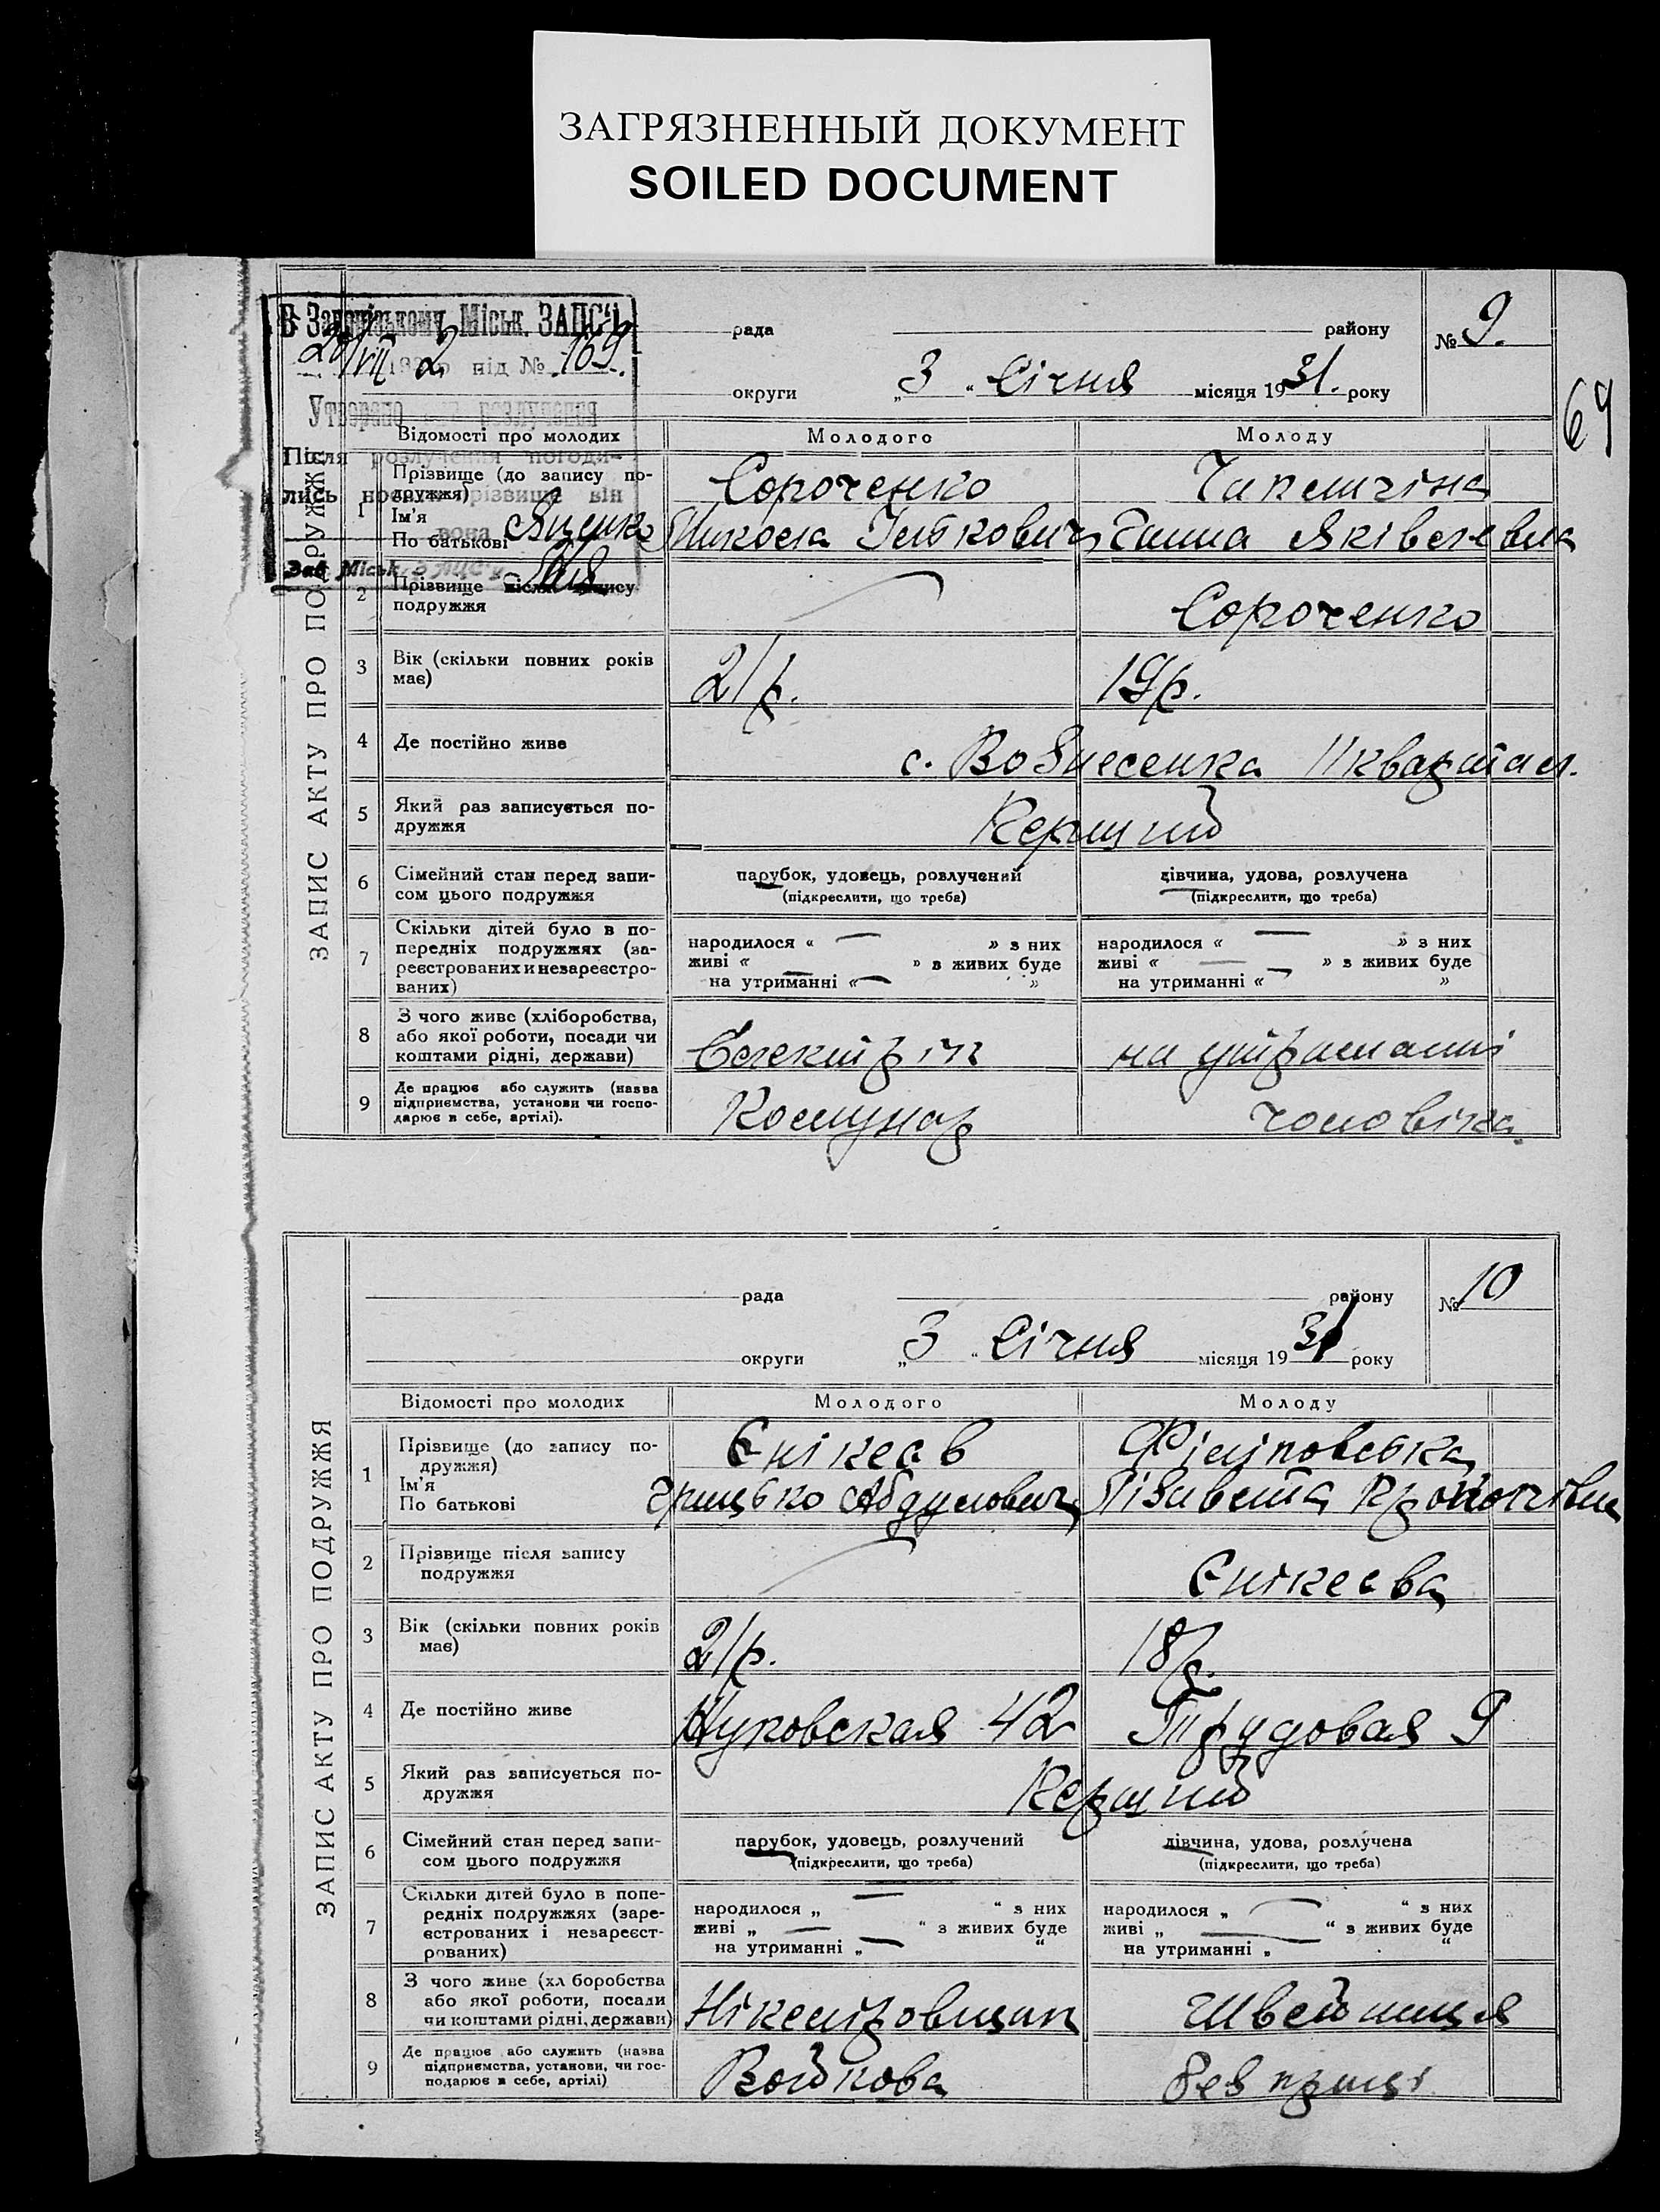 ЗАГРЯЗНЕННЫЙ ДОКУМЕНТ
SOILED DOCUMENT
В Запорізькому Міськ. ЗАГС'і
20/VII 1932 р під № 169.
Утворено розлучення
Після розлучення погоди-
лись носити прізвища він
вона Яценко
Зав Міськ. ЗАГС'у
рада району № 9.
округи „3“ Січня місяця 1931. року
64
ЗАПИС АКТУ ПРО ПОДРУЖЖЯ
Відомості про молодих Молодого Молоду
1 Прізвище (до запису по-
дружжя) Сороченко
Ім'я
По батькові Микола Ганна Яківлевна
2 Прізвище після запису
подружжя Сороченко
3 Вік (скільки повних років
має) 21 р. 19 р.
4 Де постійно живе с. Вознесенка 11 квартал.
5 Який раз записується по-
дружжя Перший
6 Сімейний стан перед запи-
сом цього подружжя
парубок, удовець, розлучений
(підкреслити, що треба)
дівчина, удова, розлучена
(підкреслити, що треба)
7 Скільки дітей було в по-
передніх подружжях (за-
реєстрованих и незареєстро-
ваних)
народилося « — » з них
живі « — » в живих буде
на утриманні « — »
народилося « — » з них
живі « — » з живих буде
на утриманні « — »
8 З чого живе (хліборобства,
або якої роботи, посади чи
коштами рідні, держави)
на утриманні
9 Де працює або служить (назва
підприємства, установи чи госпо-
дарює в себе, артілі).
Комунар чоловіка.
рада району № 10
округи „3“ Січня місяця 1931 року
ЗАПИС АКТУ ПРО ПОДРУЖЖЯ
Відомості про молодих Молодого Молоду
1 Прізвище (до запису по-
дружжя) Єнікеєв Філіповська
Ім'я
По батькові Грицько Абдулович Лізавета
2 Прізвище після запису
подружжя Єнікеєва
3 Вік (скільки повних років
має) 21 р. 18 р.
4 Де постійно живе 42 Трудовая 9
5 Який раз записується по-
дружжя Перший
6 Сімейний стан перед запи-
сом цього подружжя
парубок, удовець, розлучений
(підкреслити, що треба)
дівчина, удова, розлучена
(підкреслити, що треба)
7 Скільки дітей було в попе-
редніх подружжях (заре-
єстрованих і незареєст-
рованих)
народилося „ — “ з них
живі „ — “ з живих буде
на утриманні „ — “
народилося „ — “ з них
живі „ — “ з живих буде
на утриманні „ “
8 З чого живе (хл боробства
або якої роботи, посади
чи коштами рідні, держави)
Швейниця
9 Де працює або служить (назва
підприємства, установи, чи гос-
подарює в себе, артілі)
Войкова